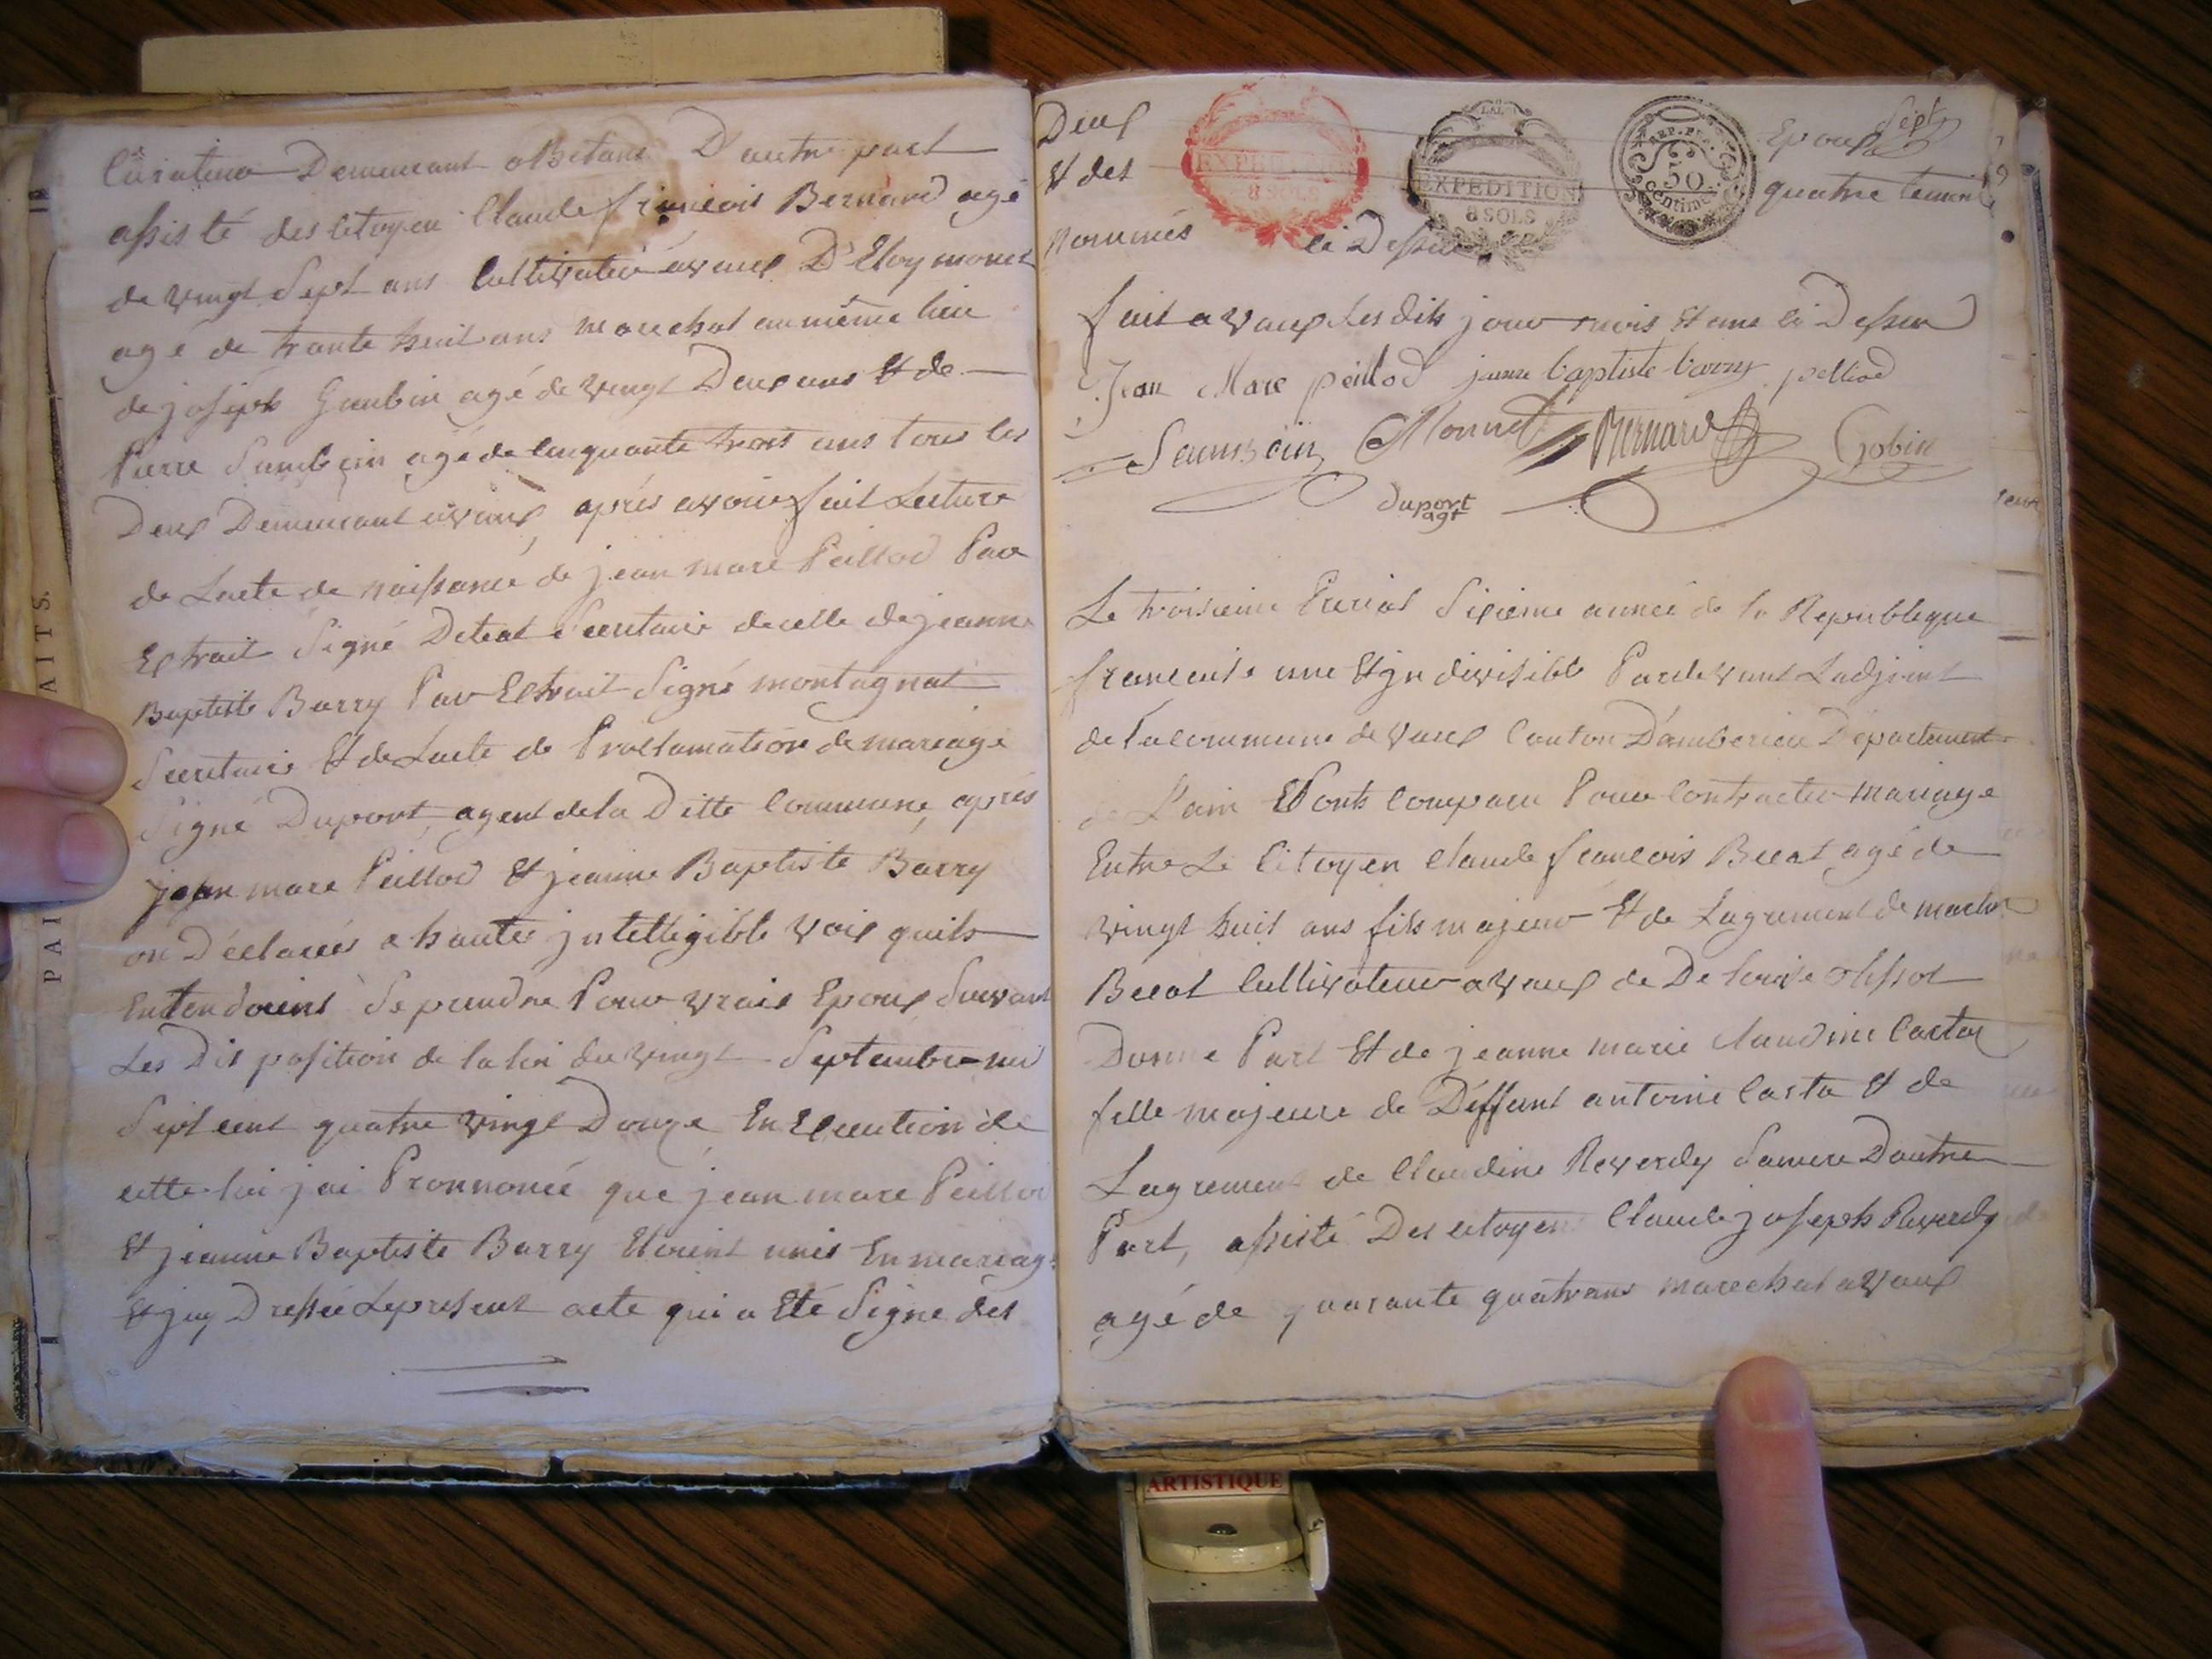 Curateur Demeurant a Betans D'autre part
assisté des citoyen Claude françois Bernard agé
de vingt Sept ans Cultivateur a vaux D'Eloy monet
agé de trante huit ans marechal au même lieu
de joseph Gaubin agé de vingt Deux ans & de
Pierre Sambein agé de Cinquante trois ans tous les
Deux Demeurant a vaux, après avoir fait Lecture
de Lacte de naissance de jean marc Peillod Par
Extrait Signé Secretaire de celle de jeanne
Baptiste Barry Par Extrait Signé montagnat
Secretaire & de Lacte de Proclamation de mariage
Signé Duport, agent de la Ditte Commune, après
jean marc Peillod & jeanne Baptiste Barry
on Déclarés a haute jntelligible voix quils
Entendoient Se prendre Pour vrais Epoux Suivant
Les Disposition de la loi du vingt Septembre mil
Sept cent quatre vingt Douze En Execution de
cette loi jai Prononcé que jean marc Peillod
& jeanne Baptiste Barry Etoient unis En mariage
& jay Dressée Le present acte qui a Eté Signé des
Sept
Deux Epoux
& des quatre temoins
nommés ci Dessus
EXPEDITION
8 SOLS
EXPEDITION
8 SOLS
REP. FRA.
50
centimes
fait a vaux Les dits jour mois & ans ci Dessus
Jean Marc peillod jeanne baptiste barry pelliod
Monnet Bernard Gobin
duport
agt
Le troisieme Prerial Sixieme année de la Republique
francaise une & jndivisible Pardevant Ladjoint
de la commune de vaux Canton D'amberieu Departement
de L'ain Etont Comparu Pour Contracter mariage
Entre Le Citoyen Claude francois Becat agé de
vingt huit ans fils majeur & de Lagrement de
Becat Cultivateur a vaux de De
Donne Part & de jeanne marie Claudine Costaz
fille majeure de Deffunt antoine Costa & de
Lagrement de Claudine Reverdy Samere Dautre
Part, assisté Des citoyen Claude joseph Reverdy
agé de quarante quatrans marechal a vaux
PAI
AITS.
ARTISTIQUE